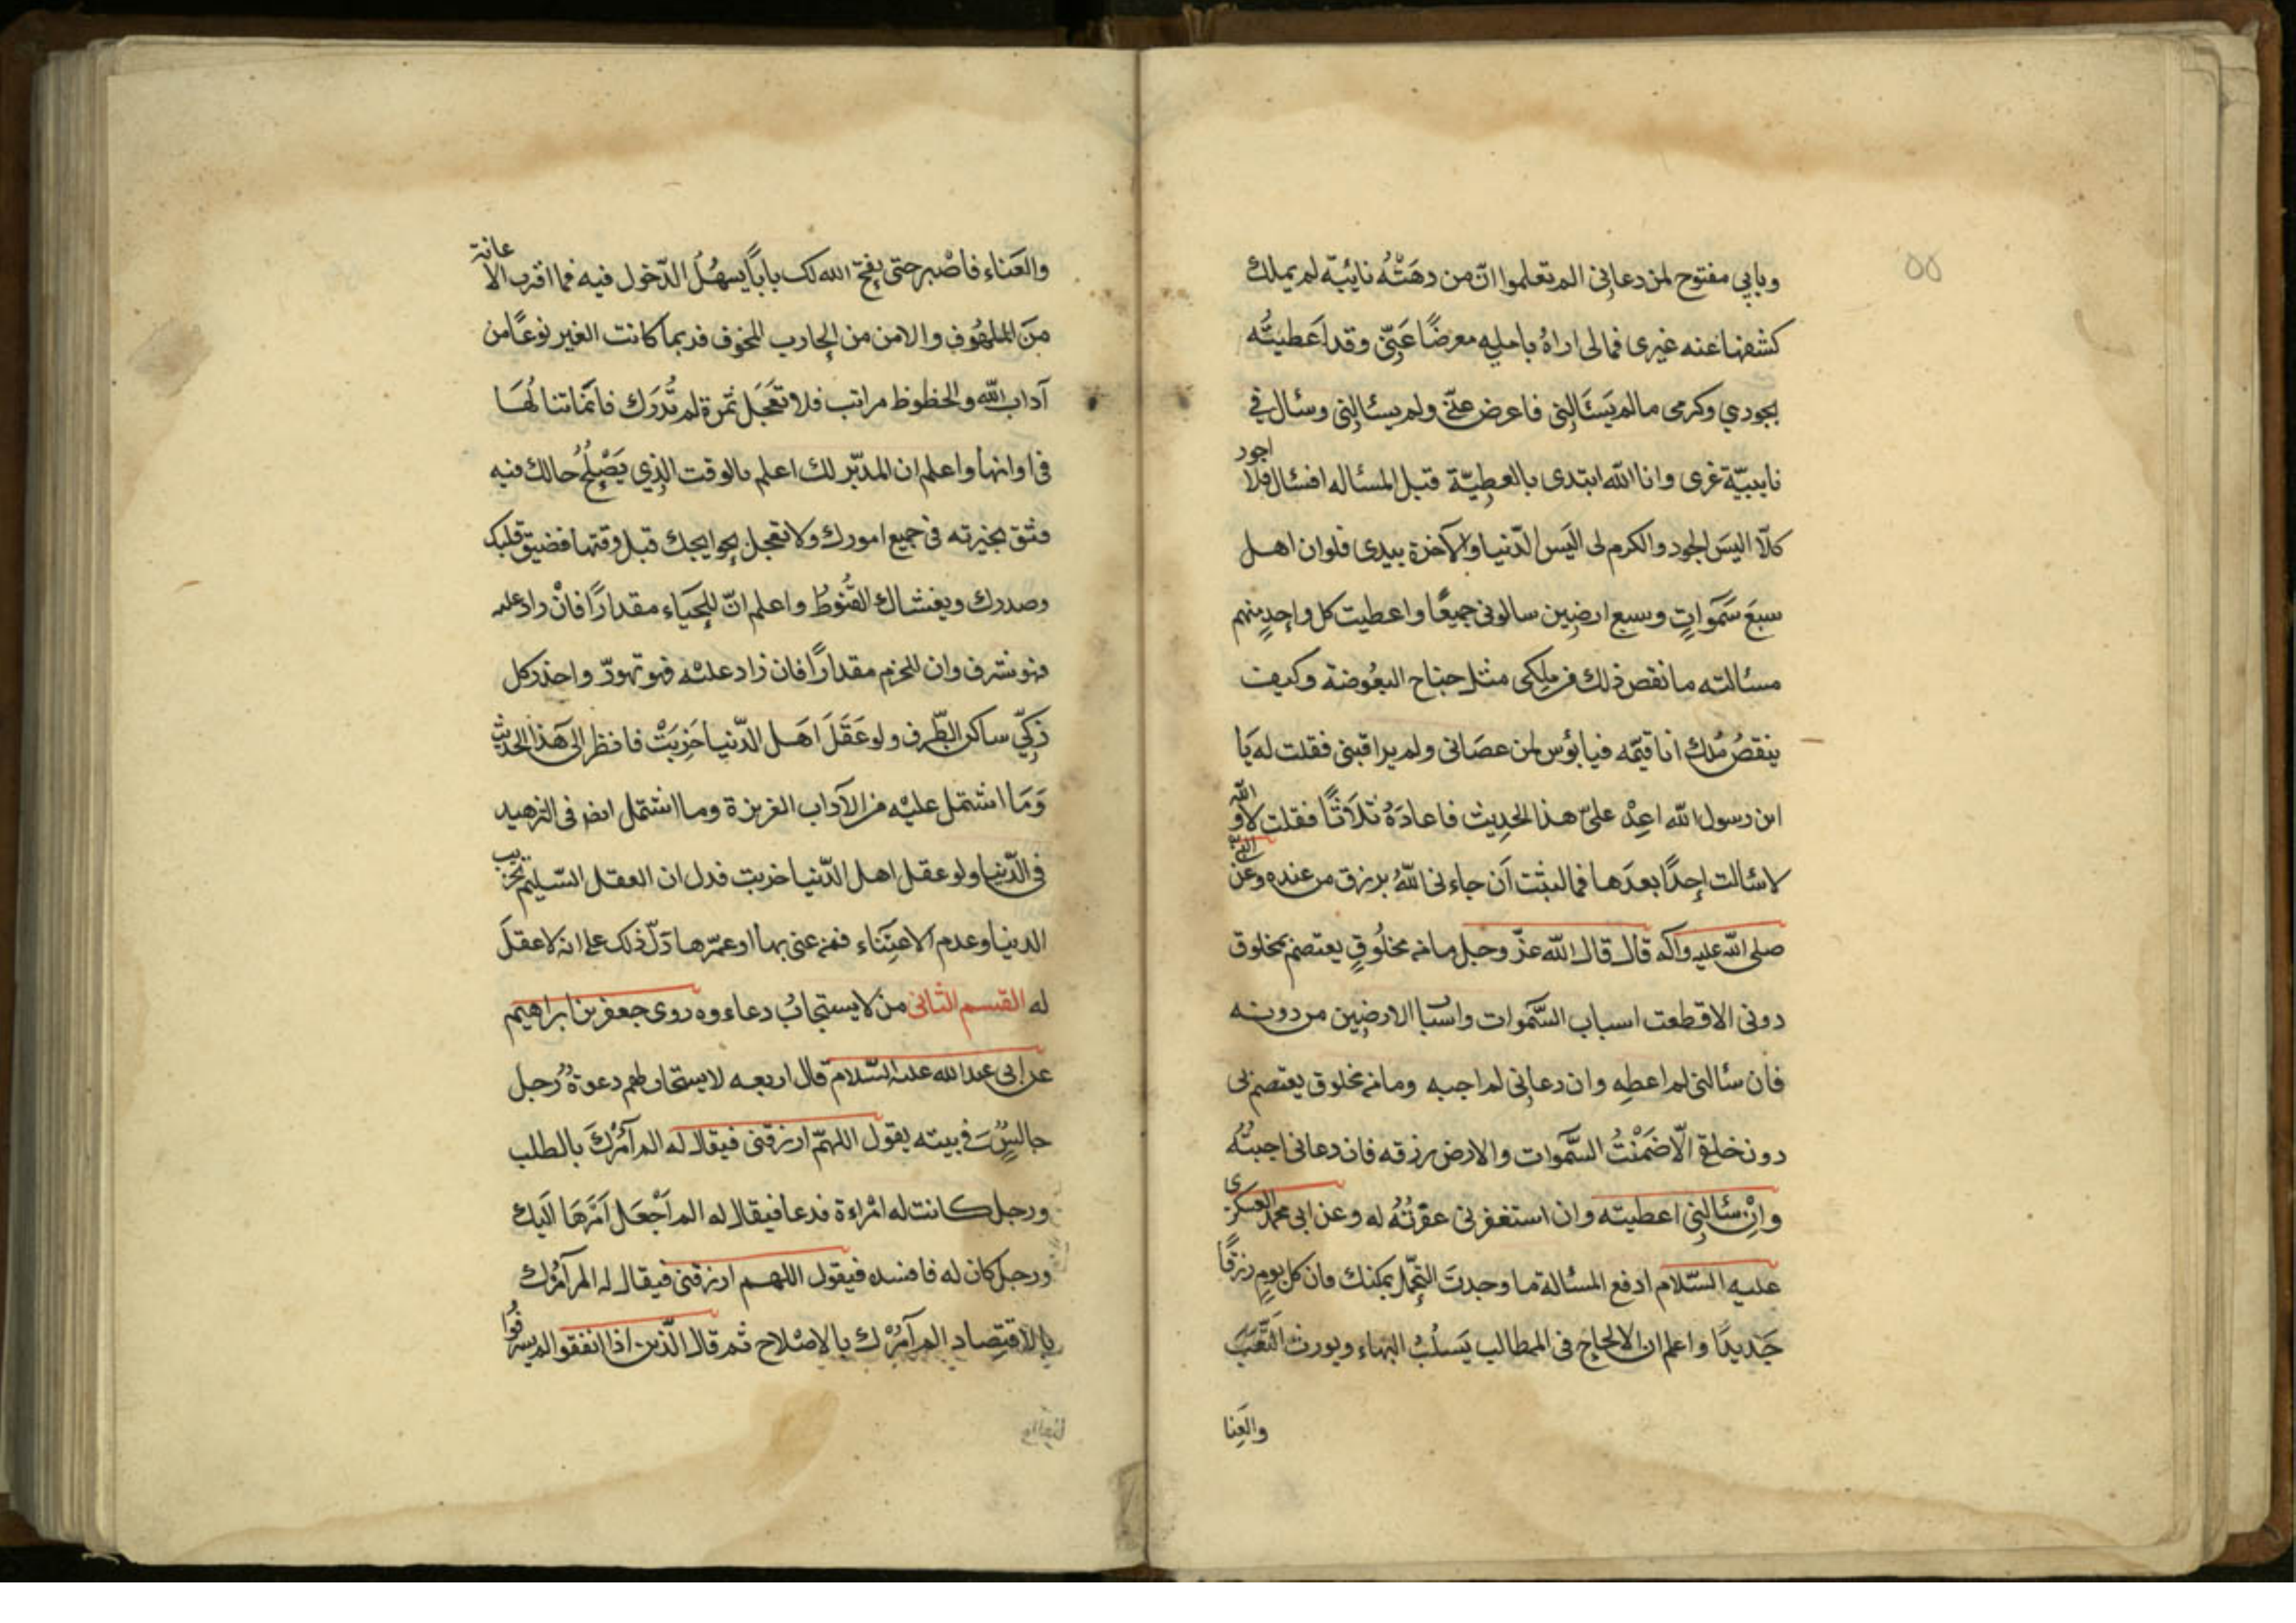 ٥٥
وبابي مفتوح لمن دعاني الم تعلموا انّ من دهَتْهُ نائبة لم يملك
كشفها عنه غيرى فمالى اراهُ بامليه معرضًا عَنّى وقد اَعطيتُه
بجودي وكرمى مالم يَسئَالنِى فاعرض عنّى ولم يسئالنِى وسئال فى
نايبيّة غرى وانا الله ابتدى بالعطِيّة قبل المسئاله افسئال فلا اجود
كلّا اليسَ الجود والكرم لى اليَس الدّنيا والآخرة بيدى فلوان اهل
سبعَ سَمَواتٍ وسبع ارضِين سالونى جميعًا واعطيت كل واحِدٍ منهم
مسئالته ما نقص ذلك من ملكى مثل جناح البعُوضة وكيف
ينقصُ مُلك انا قيّمه فيا بؤس لمن عصَانى ولم يراقبنى فقلت له يَا
ابن رسول الله اعِدْ علىّ هذا الحدِيث فاعادَهُ ثلاثًا فقلت لا و الله
لا سئالت احِدًا بعدَها فما لبثت اَن جاءنى اللهُ برزق من عنده وعَن النبىّ
صلى الله عليه وآله قال قال الله عزّ وجل ما من مخلُوقٍ يعتصم بمخلوق
دونى الا قطعت اسباب السَّموات واسباب الارضِين من دونه
فان سئالنى لم اعطِه وان دعانِى لم اجبه وما من مخلوق يعتصم بى
دون خلقى الّا ضَمَنْتُ السَّموات والارض رزقه فان دعانى اجبتُهُ
وانْ سئالنِى اعطيته وان استغفرنى غفرتُهُ له وعن ابى محمد العسكرى
عليه السّلام ادفع المسئالة ما وجدتَ التّحمّل يمكنك فان كل يومٍ رزقًا
جَديدًا واعلم ان الالحاح فى المطالب يَسلُبُ البهاء ويورث التَّعَبَ
والعِنا
والعَناء فاصْبر حتى يفتح الله لك بابًا يسهُلُ الدّخول فيه فما اقرب الا عانة
مِنَ الملهُوفِ والامن من الهارب المخوف فربما كانت الغير نوعًا من
آداب الله والحظوظ مراتب فلا تعَجَل ثمرة لم تُدرَك فانّما تنالُهَا
فى اوانها واعلم ان المدبّر لك اعلم بالوقت الذِي يَصْلِحُ حالك فيه
فثق بخيرته فى جميع امورك ولا تعجل بحوايجك قبل وقتها فضيق قلبك
وصدرك ويغشاك القُنوطُ واعلم انّ للحَيَاء مقدارًا فانْ زاد عليه
فهو سرف وان للحزم مقدارًا فان زاد عليْه فهو تهوّر واحذر كل
ذكِىّ ساكن الطّرف ولو عَقَلَ اهَل الدّنيا خَرِبَتْ فانظر الى هَذا الحديث
وَمَا اشتمل عليْه من الآداب الغريزة وما اشتمل ايضا فى التزهيد
فى الدّنيا ولو عقل اهل الدّنيا خربت فدل ان العقل السّليم تخريب
الدنيا وعدم الاعتِناء فمن عنى بها او عمّرها دَلّ ذلك على انه لا عقلَ
له القسم الثانى من لا يستجابُ دعاءوه روى جعفر بن ابراهيم
عن ابى عبد الله عليه السّلام قال اربعه لا يستجاب لهم دعوةُ رجل
جالسٌ فى بيته يقول اللهمّ ارزقنى فيقال له الم آمُرْكَ بالطلب
ورجل كانت له امْراءة فدعا فيقال له الم اَجْعَل اَمَرَهَا اليَك
ورجل كان له فافسده فيقول اللهم ارزقنى فيقال له الم آمُرْك
بالاقتِصاد الم آمُرْك بالاِصْلاح ثم قال الّذين اذا انفقوا لم يسرفُوا